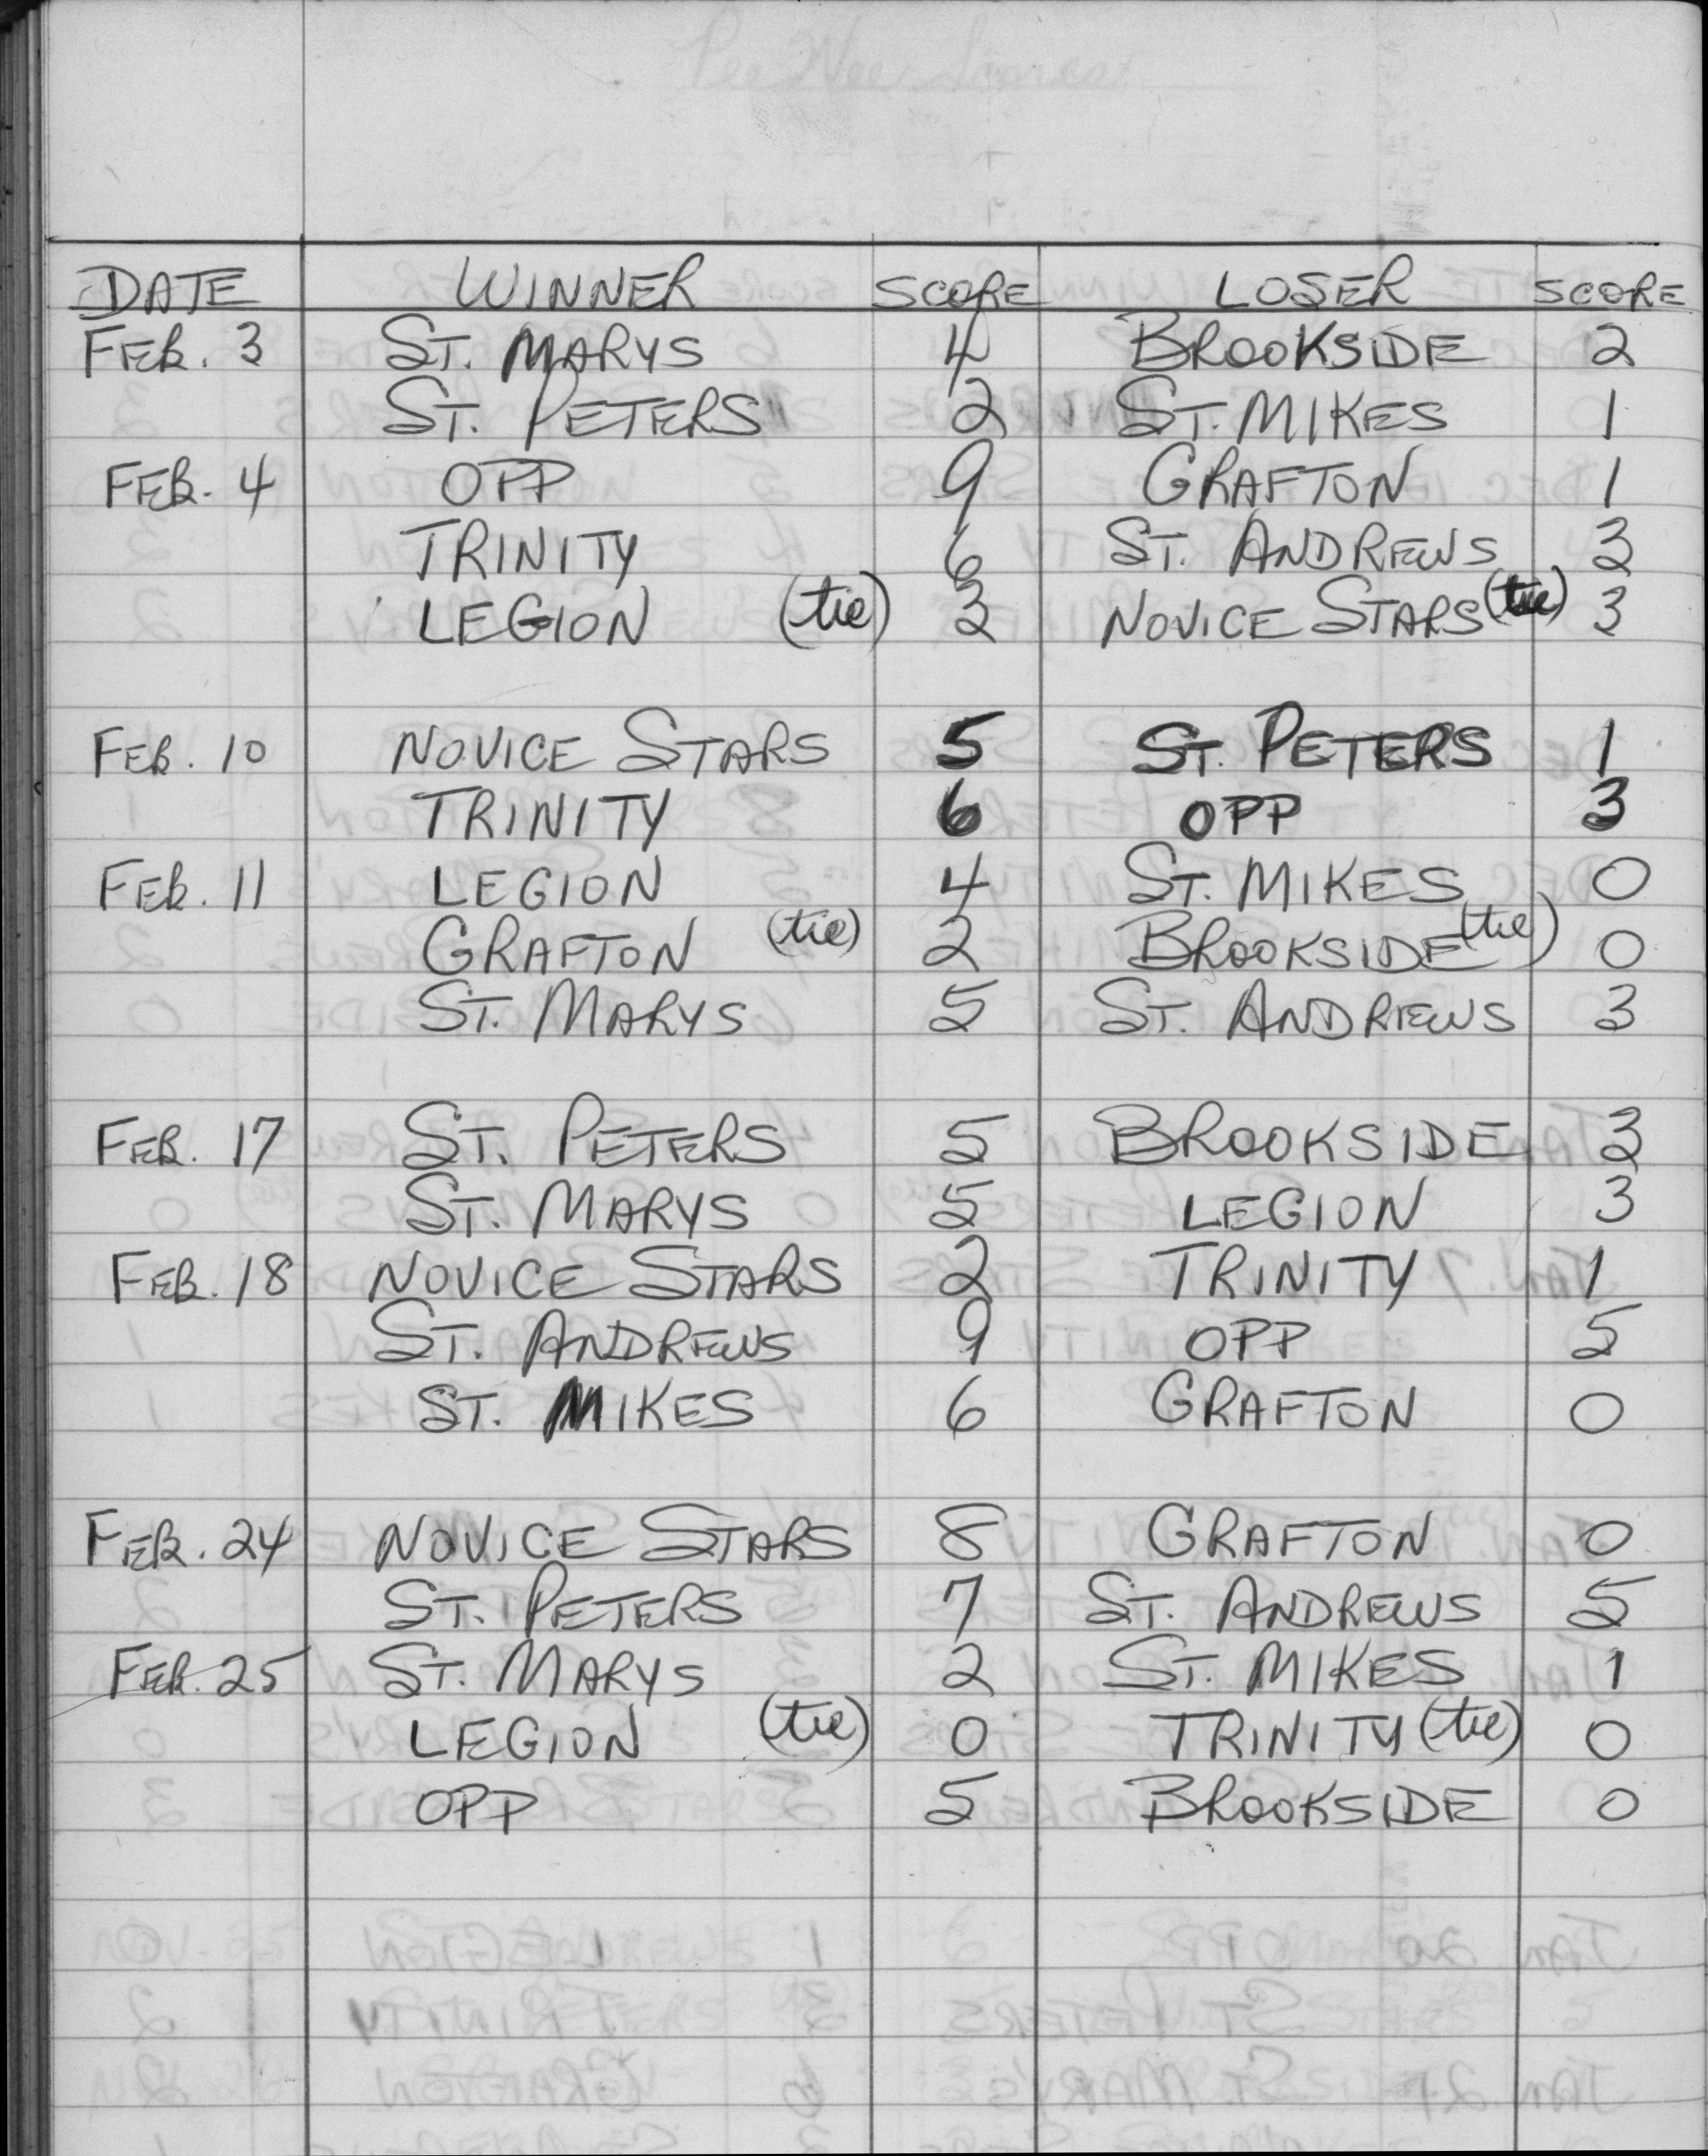 Pee Wee Scores
DATE WINNER SCORE LOSER SCORE
FEB. 3 ST. MARYS 4 BROOKSIDE 2
ST. PETERS 2 ST. MIKES 1
FEB. 4 OPP 9 GRAFTON 1
TRINITY 6 ST. ANDREWS 3
LEGION (tie) 3 NOVICE STARS (tie) 3
FEB. 10 NOVICE STARS 5 ST. PETERS 1
TRINITY 6 OPP 3
FEB. 11 LEGION 4 ST. MIKES 0
GRAFTON (tie) 2 BROOKSIDE (tie) 0
ST. MARYS 5 ST. ANDREWS 3
FEB. 17 ST. PETERS 5 BROOKSIDE 3
ST. MARYS 5 LEGION 3
FEB. 18 NOVICE STARS 2 TRINITY 1
ST. ANDREWS 9 OPP 5
ST. MIKES 6 GRAFTON 0
FEB. 24 NOVICE STARS 8 GRAFTON 0
ST. PETERS 7 ST. ANDREWS 5
FEB. 25 ST. MARYS 2 ST. MIKES 1
LEGION (tie) 0 TRINITY (tie) 0
OPP 5 BROOKSIDE 0